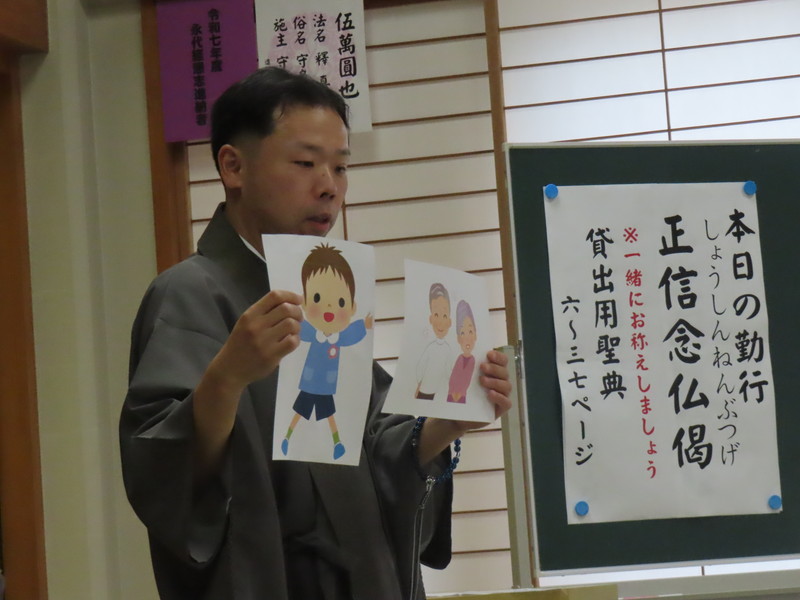 本日の勤行
しょうしんねんぶつげ
正信念仏偈
※一緒にお称えしましょう
貸出用聖典
六〜三七ページ
伍萬圓也
法名 釋
俗名 守
施主 守
令和七年度